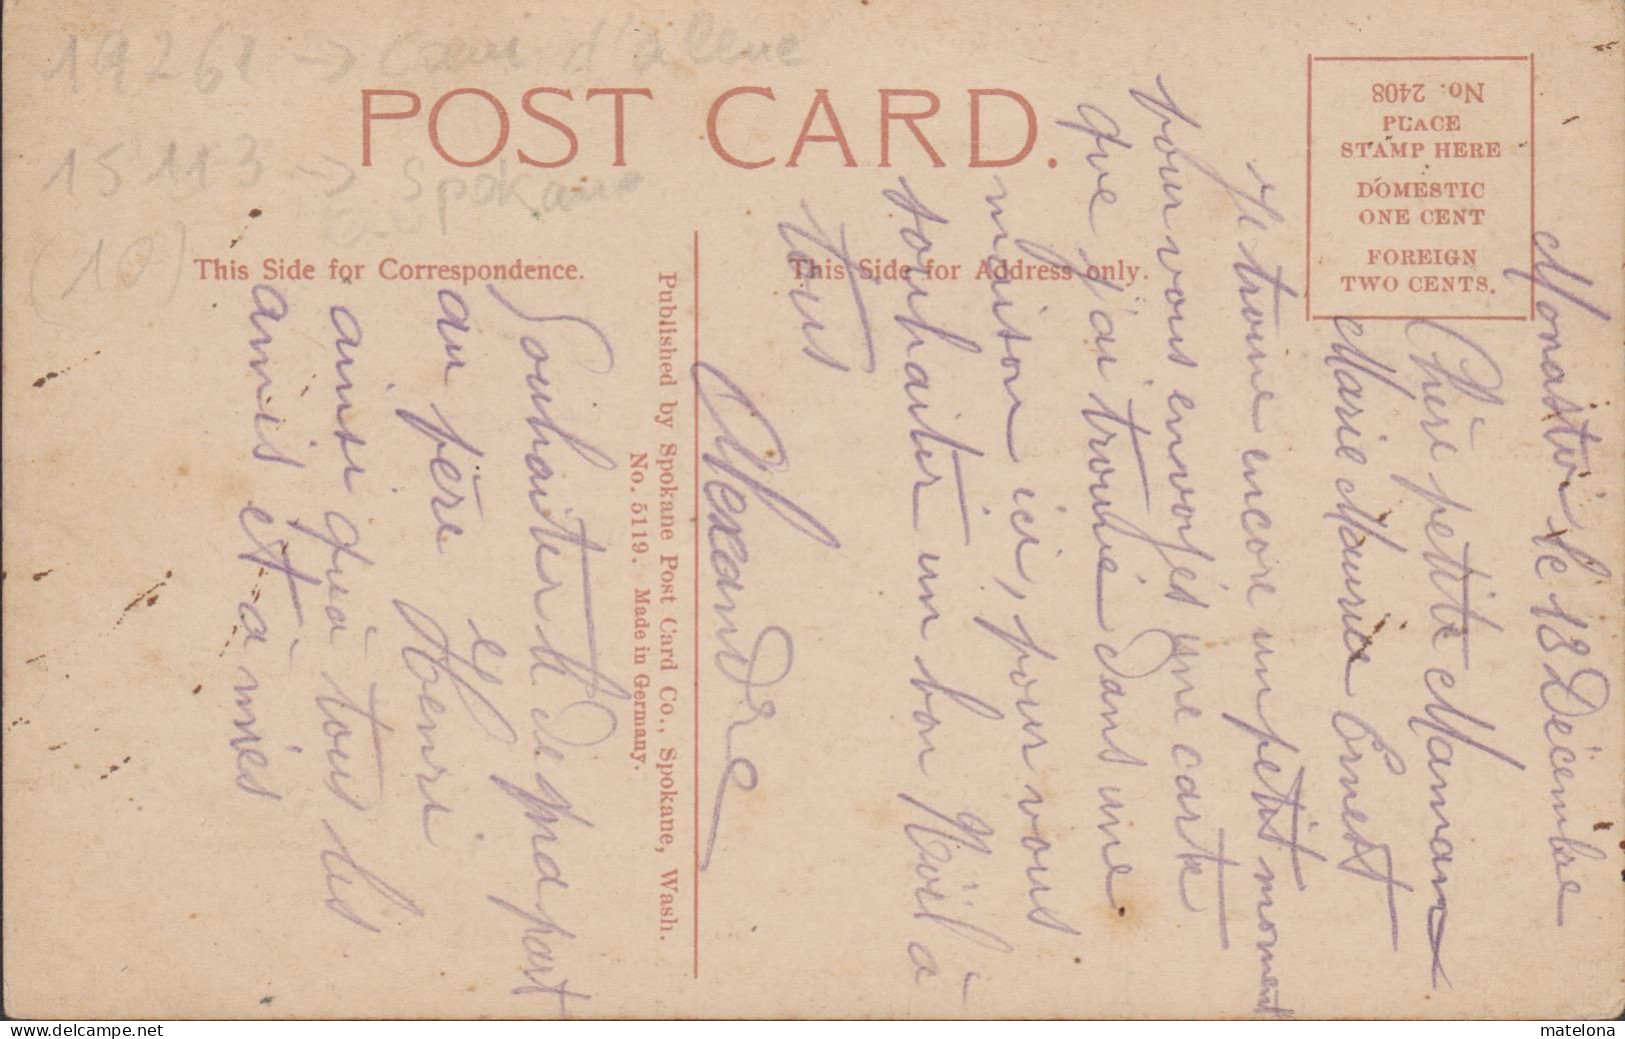 19261 → Coeur d'alene
15113 → Spokane
(10)
POST CARD.
This Side for Correspondence.
This Side for Address only.
No. 2408
PLACE
STAMP HERE
DOMESTIC
ONE CENT
FOREIGN
TWO CENTS.
Published by Spokane Post Card Co., Spokane, Wash.
No. 5119. Made in Germany.
Monastir le 18 Décembre
Chère petite Maman
Marie Maurice Ernest
Je trouve encore un petit moment
pour vous envoyés une carte
que j'ai trouvé dans une
maison ici, pour vous
souhaiter un bon Noël à
tous
Alexandre
Souhaiter h de ma part
au père Henri
ainsi qu'à tous les
amis et à mies
matelona